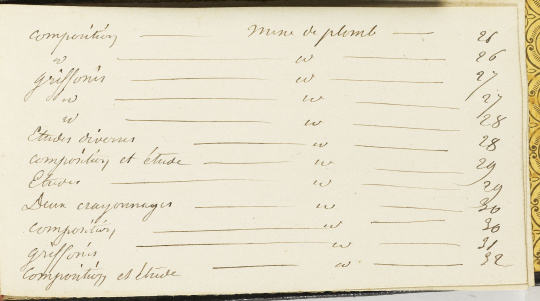 composition — mine de plomb — 26
w — w — 26
griffonis — w — 27
w — w — 27
w — w — 28
Etudes diverses — w — 28
composition et étude — w — 29
Etudes — w — 29
Deux crayonnages — w — 30
composition — w — 30
griffonis — w — 31
composition et étude — w — 32